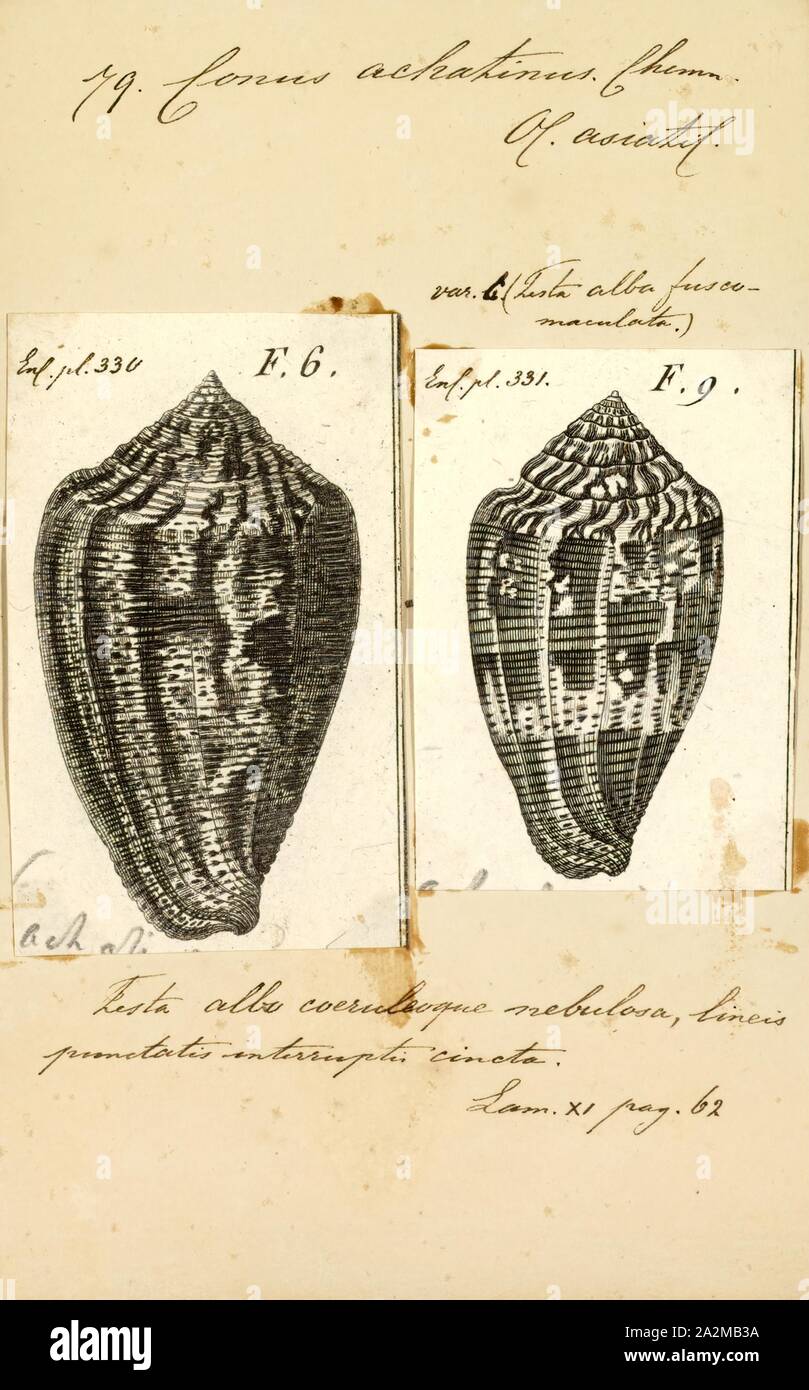 79. Conus achatinus. Chemn.
Ol. asiatil.
var. b. (Testa alba fusco-
maculata.)
Enl. pl. 330 F. 6.
Enl. pl. 331. F. 9.
achati
Testa albo coeruleoque nebulosa, lineis
punctatis interruptis cincta.
Lam. XI pag. 62
alamy
Image ID: A2MB3A
www.alamy.com